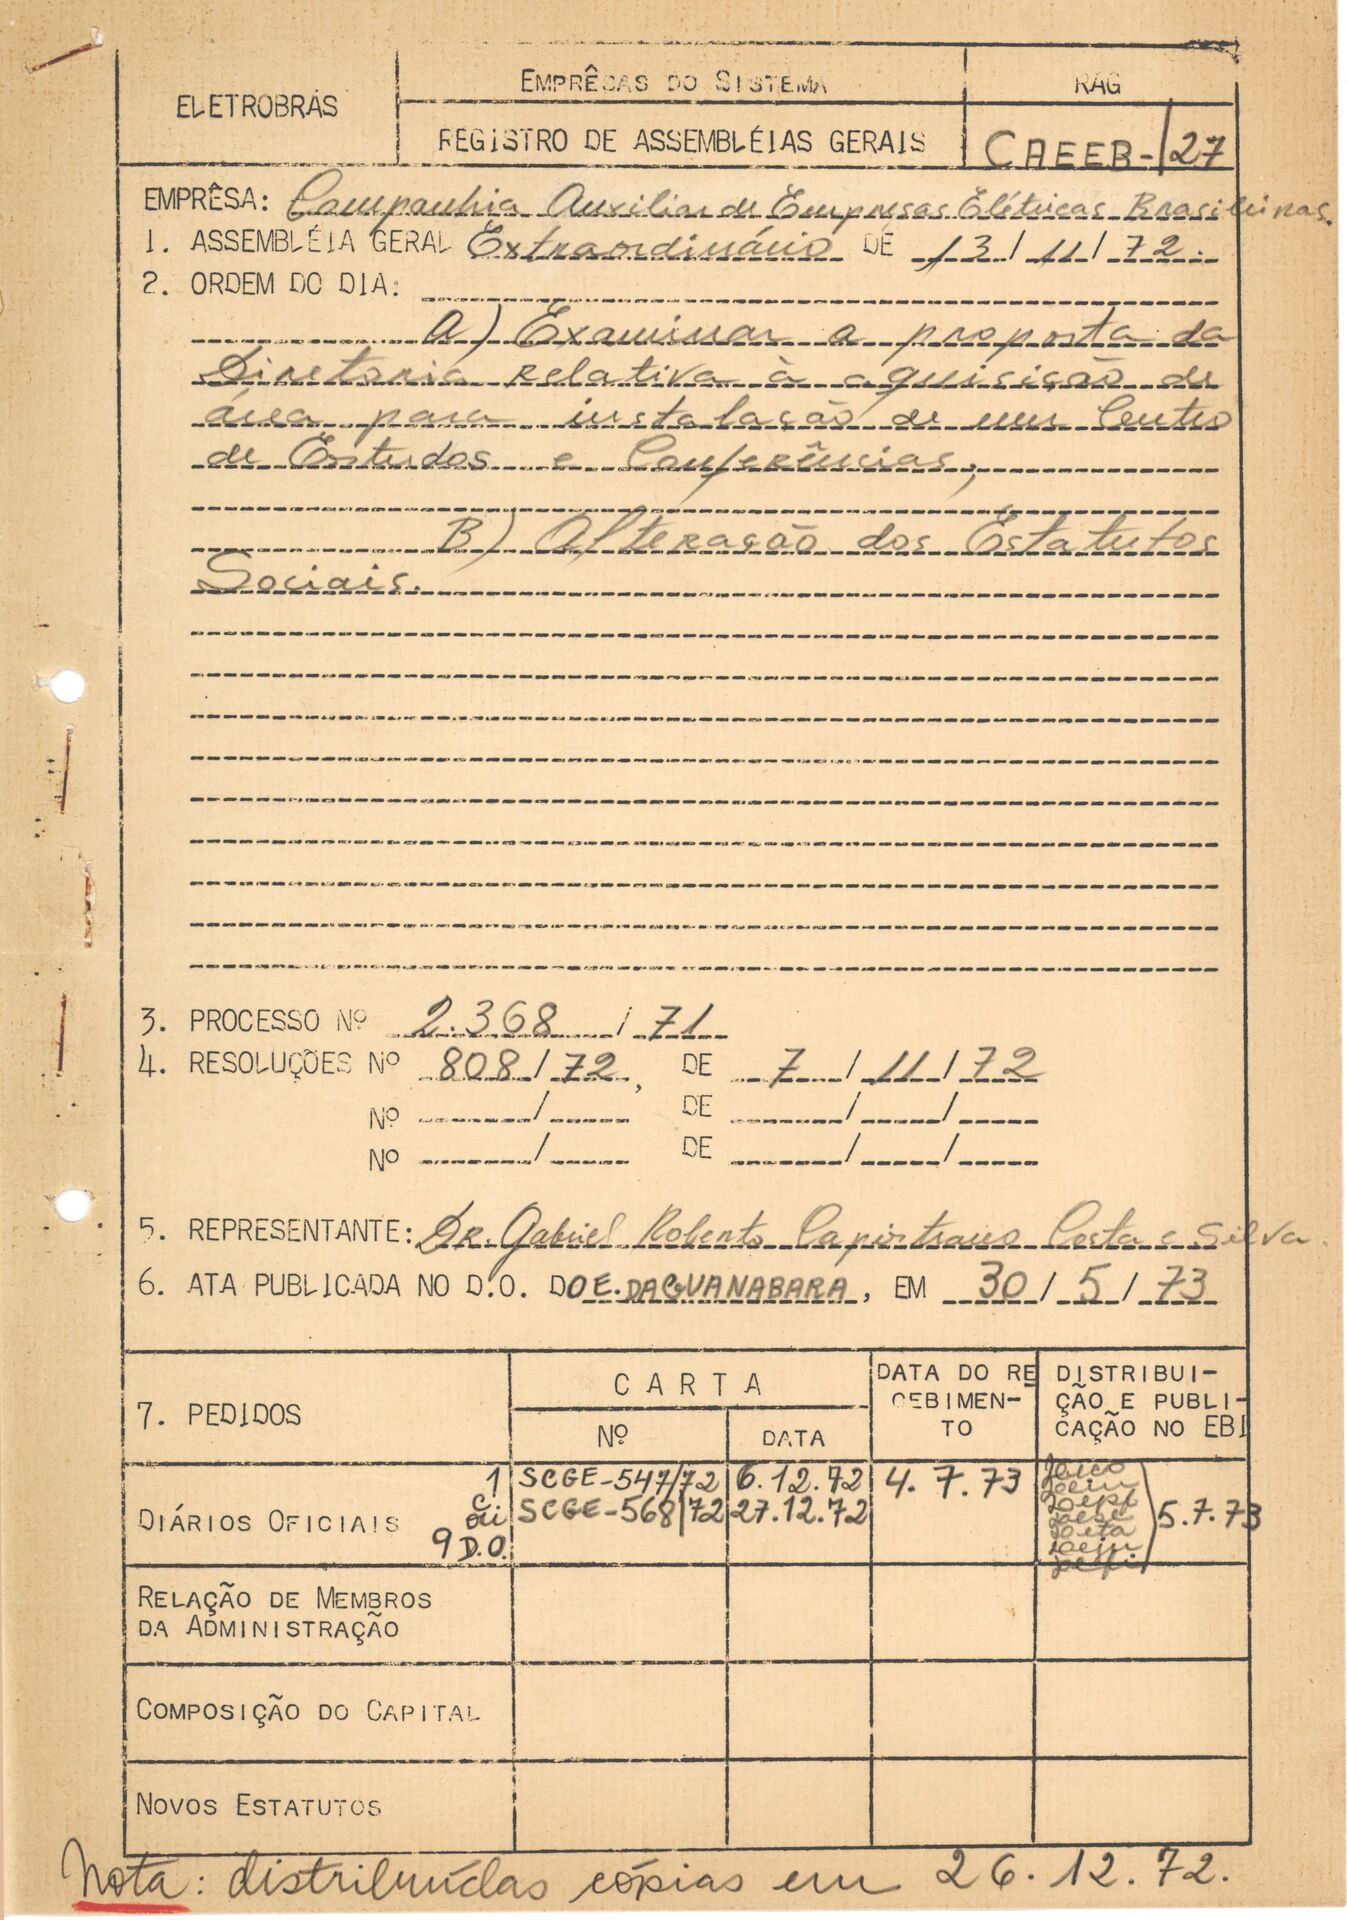 ELETROBRÁS
EMPRÊSAS DO SISTEMA
RAG
REGISTRO DE ASSEMBLÉIAS GERAIS
CAEEB-/27
EMPRÊSA: Companhia Auxiliar de Empresas Elétricas Brasileiras.
1. ASSEMBLÉIA GERAL Extraordinário DE 13/11/72.
2. ORDEM DO DIA:
A) Examinar a proposta da
Diretoria relativa à aquisição de
área para instalação de um Centro
de Estudos e Conferências;
B) Alteração dos Estatutos
Sociais.
3. PROCESSO Nº 2.368 / 71
4. RESOLUÇÕES Nº 808/72, DE 7/11/72
Nº / DE / /
Nº / DE / /
5. REPRESENTANTE: DR. Gabriel Roberto Capistrano Costa e Silva.
6. ATA PUBLICADA NO D.O. DO E. DA GUANABARA, EM 30/5/73
7. PEDIDOS
CARTA
Nº
DATA
DATA DO RE
CEBIMEN-
TO
DISTRIBUI-
ÇÃO E PUBLI-
CAÇÃO NO EBI
DIÁRIOS OFICIAIS
1
9 D.O.
SCGE-547/72 6.12.72 4.7.73
SCGE-568/72 27.12.72
5.7.73
RELAÇÃO DE MEMBROS
DA ADMINISTRAÇÃO
COMPOSIÇÃO DO CAPITAL
NOVOS ESTATUTOS
Nota: distribuídas cópias em 26.12.72.